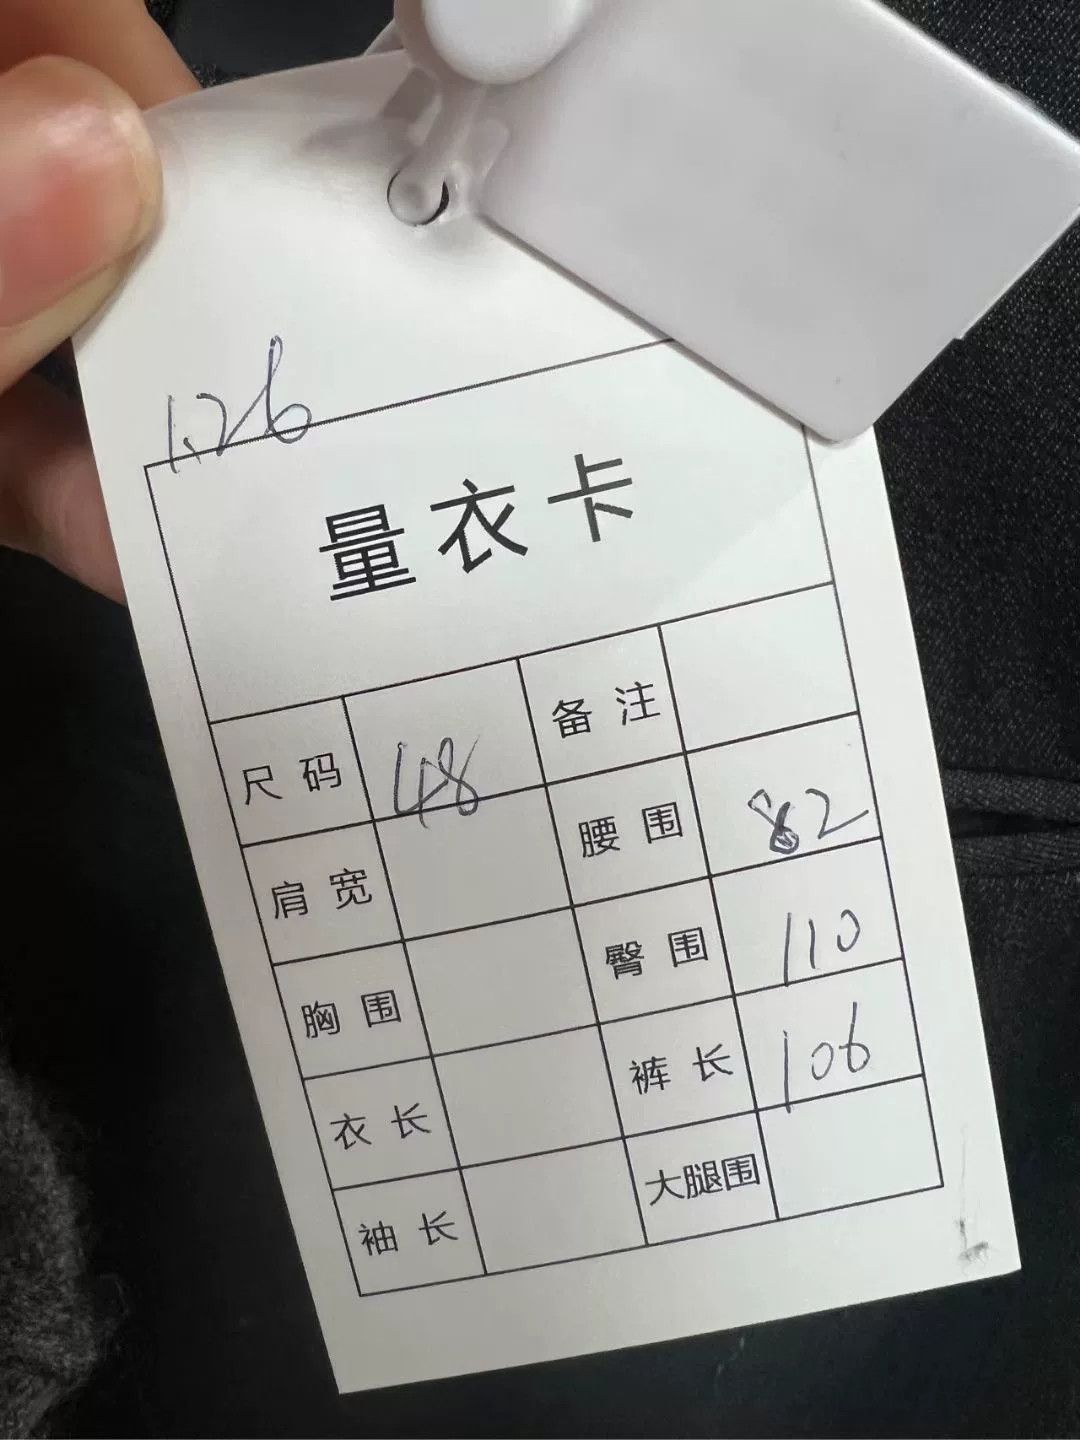 1.26
量衣卡
尺码 48 备注
肩宽 腰围 82
胸围 臀围 110
衣长 裤长 106
袖长 大腿围